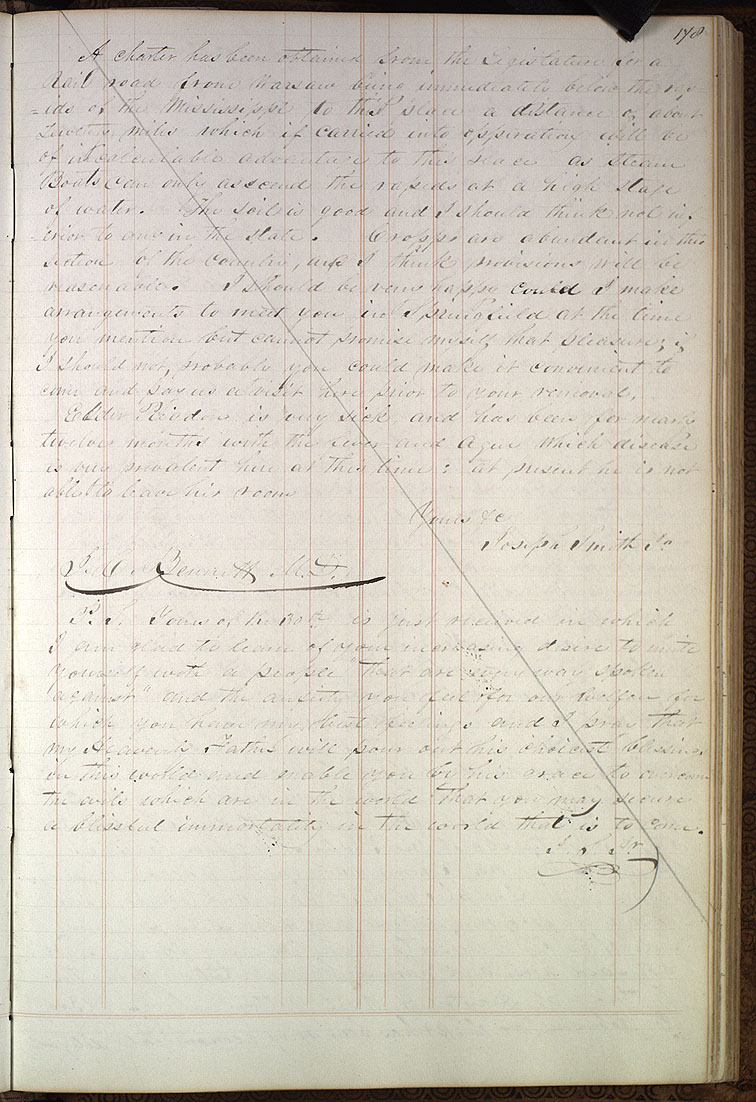 178
A charter has been obtained from the Legislature for a
Rail road from Warsaw being immediately below the rap-
-ids of the Mississippi to this place a distance of about
Twenty miles which if carried into opperation will be
of incalculable advantage to this place as steam
Boats can only ascend the rapids at a high stage
of water. The soil is good and I should think not inf-
-erior to any in the state. Cropps are abundent in this
section of the country, and I think provisions will be
reasonable. I should be very happy could I make
arrangements to meet you in Springfield at the time
you mention but cannot promise myself that pleasure; if
I should not, provable you could make it convenient to
come and pay us a visit here prior to your removal.
Elder Rigdon is very sick, and has been for nearly
twelve months with the fever and Ague which disease
is very prevalent here at this time: at present he is not
able to leave his room
Yours &c
Joseph Smith Jr
J. C. Bennett M.D.
P.S. Yours of the 30th is just received in which
I am glad to learn of your increasing desire to unite
yourself with a people "that are every way spoken
against" and the anxiety you feel for our welfare for
which you have my best feelings and I pray that
my Heavenly Father will pour out his choicest blessings
in this world and enable you by his grace to overcome
the evils which are in the world that you may secure
a blissful immortality in the world that is to come.
J. S. Jr